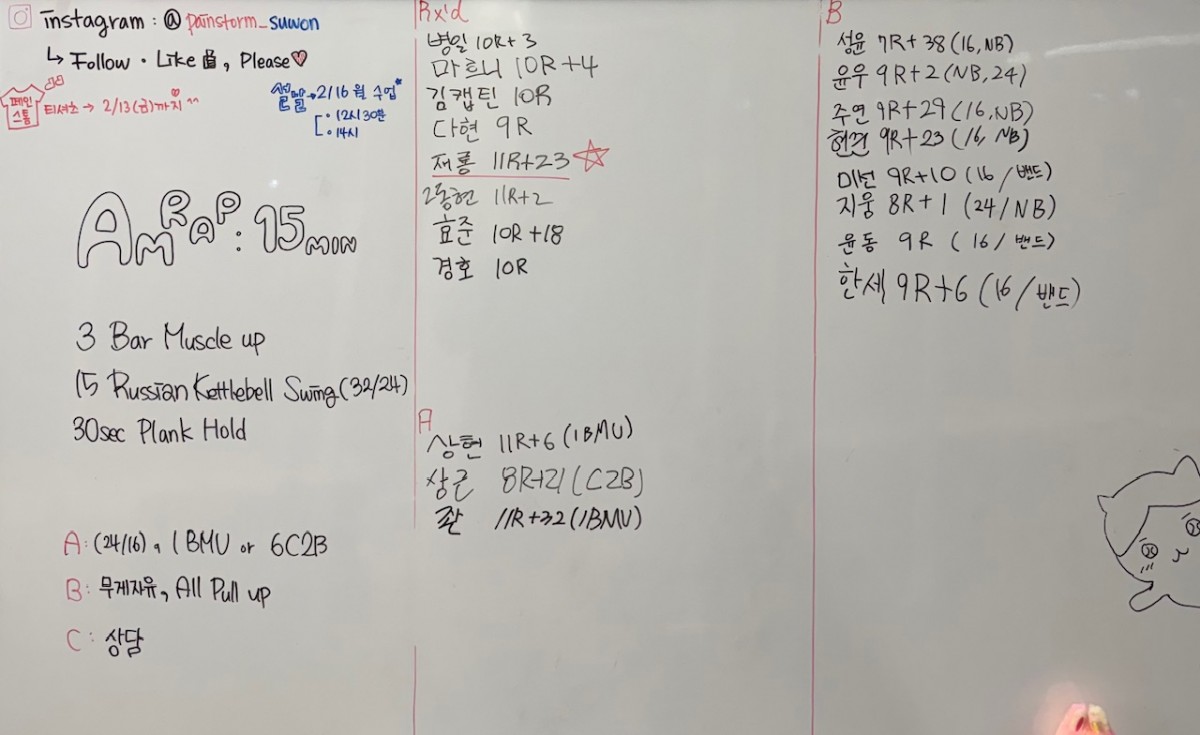 instagram : @painstorm_suwon
↳ Follow · Like 👍, Please♡
페인
스톰
티셔츠 → 2/13(금)까지 ^^
설날 → 2/16 월 수업*
· 12시 30분
· 14시
AMRAP: 15 MIN
3 Bar Muscle up
15 Russian Kettlebell Swing (32/24)
30sec Plank Hold
A: (24/16), 1 BMU or 6C2B
B: 무게자유, All Pull up
C: 상담
Rx'd
병일 10R+3
마르니 10R+4
김캡틴 10R
다현 9R
재룡 11R+23 ☆
2동현 11R+2
효준 10R+18
경호 10R
A
상현 11R+6 (1BMU)
상근 8R+21 (C2B)
11R+32 (1BMU)
B
성윤 7R+38 (16, NB)
윤우 9R+2 (NB, 24)
주연 9R+29 (16, NB)
9R+23 (16, NB)
미넌 9R+10 (16/밴드)
지웅 8R+1 (24/NB)
윤동 9R (16/밴드)
한세 9R+6 (16/밴드)